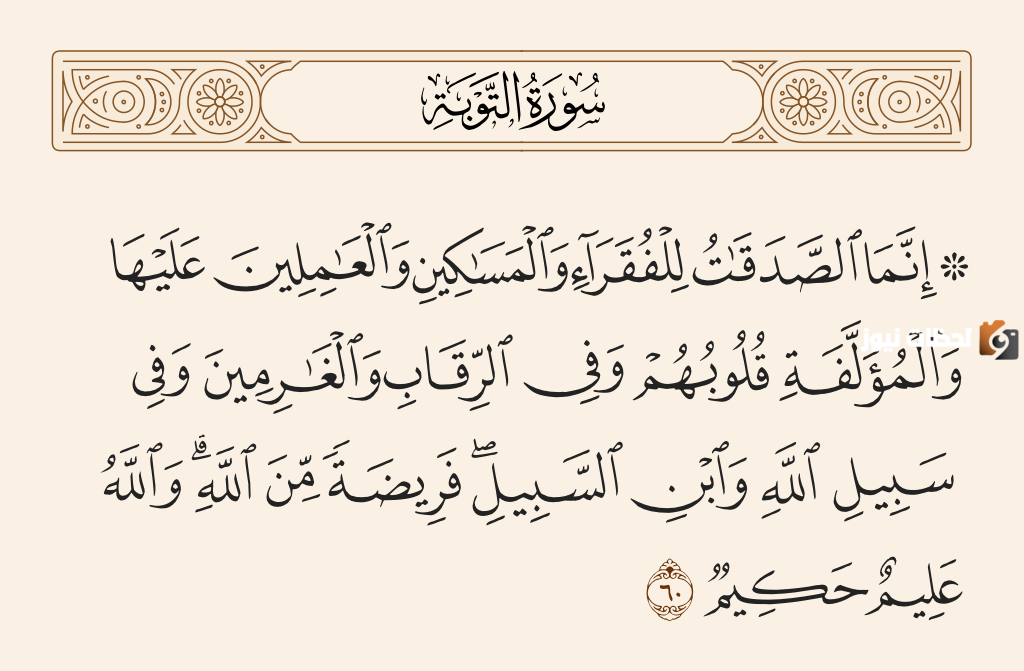 سُورَةُ التَّوْبَةِ
۞ إِنَّمَا ٱلصَّدَقَٰتُ لِلْفُقَرَآءِ وَٱلْمَسَٰكِينِ وَٱلْعَٰمِلِينَ عَلَيْهَا
لحظات نيوز
وَٱلْمُؤَلَّفَةِ قُلُوبُهُمْ وَفِى ٱلرِّقَابِ وَٱلْغَٰرِمِينَ وَفِى
سَبِيلِ ٱللَّهِ وَٱبْنِ ٱلسَّبِيلِ ۖ فَرِيضَةً مِّنَ ٱللَّهِ ۗ وَٱللَّهُ
عَلِيمٌ حَكِيمٌ ٦٠